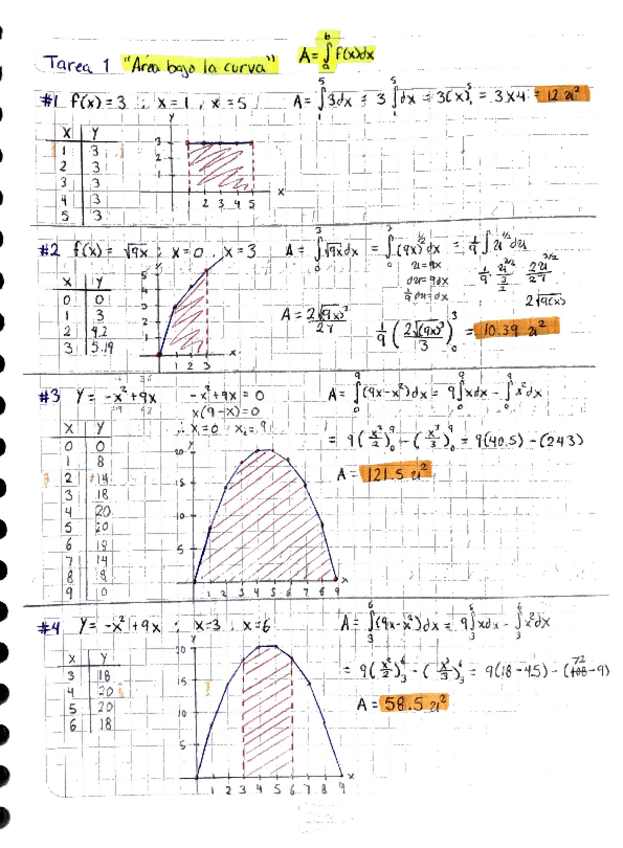 Tarea 1 "Área bajo la curva" A = ∫ₐᵇ f(x)dx
#1 f(x) = 3 ; x = 1, x = 5 A = ∫₁⁵ 3dx = 3 ∫₁⁵ dx = 3(x)₁⁵ = 3x4 = 12 u²
x | y
1 | 3
2 | 3
3 | 3
4 | 3
5 | 3
y
3
2
1
2 3 4 5 x
#2 f(x) = √9x ; x = 0 x = 3 A = ∫₀³ √9x dx = ∫₀³ (9x)^1/2 dx = 1/9 ∫ u^1/2 du
u = 9x
du = 9dx
1/9 du = dx
1/9 · u^3/2 / 3/2 2u^3/2 / 27
2√9(x)
x | y
0 | 0
1 | 3
2 | 4.2
3 | 5.19
5
4
3
2
1
1 2 3 x
A = 2√(9x)³ / 27 1/9 (2√(9x)³ / 3)₀³ = 10.39 u²
#3 y = -x² + 9x -x² + 9x = 0 A = ∫₀⁹ (9x - x²) dx = 9∫₀⁹ x dx - ∫₀⁹ x² dx
x(9 - x) = 0
∴ x₁ = 0 x₂ = 9
= 9(x²/2)₀⁹ - (x³/3)₀⁹ = 9(40.5) - (243)
A = 121.5 u²
x | y
0 | 0
1 | 8
2 | 14
3 | 18
4 | 20
5 | 20
6 | 18
7 | 14
8 | 8
9 | 0
y
20
15
10
5
1 2 3 4 5 6 7 8 9 x
#4 y = -x² + 9x ; x = 3, x = 6 A = ∫₃⁶ (9x - x²) dx = 9∫₃⁶ x dx - ∫₃⁶ x² dx
= 9(x²/2)₃⁶ - (x³/3)₃⁶ = 9(18 - 4.5) - (72 - 9)
A = 58.5 u²
x | y
3 | 18
4 | 20
5 | 20
6 | 18
y
20
15
10
5
1 2 3 4 5 6 7 8 9 x